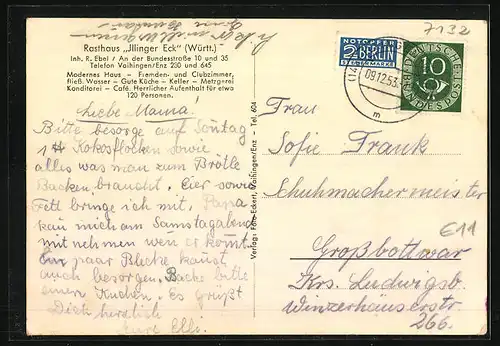 7132
Rasthaus „Illinger Eck" (Württ.)
Inh. R. Ebel / An der Bundesstraße 10 und 35
Telefon Vaihingen/Enz 230 und 645
Modernes Haus – Fremden- und Clubzimmer,
fließ. Wasser – Gute Küche – Keller – Metzgerei
Konditorei – Café. Herrlicher Aufenthalt für etwa
120 Personen.
NOTOPFER
2 BERLIN
STEUERMARKE
09.12.53.
m
DEUTSCHE BUNDESPOST
10
Liebe Mama!
Bitte besorge auf Sontag
1 ℔ Kokosflocken sowie
alles was man zum Brötle
Backen braucht. Eier sowie
Fett bringe ich mit. Papa
kan mich am Samstagabend
mitnehmen wen er komt.
Ein paar Bleche kanst
auch besorgen. Backe bitte
einen Kuchen. Es grüßt
Dich herzlich
Verlag: Foto-Eckert, Vaihingen/Enz - Tel. 604
Frau
Sofie Frank
Schuhmachermeister
€11
Großbottwar
Krs. Ludwigsb.
Winzerhäuserstr.
266.